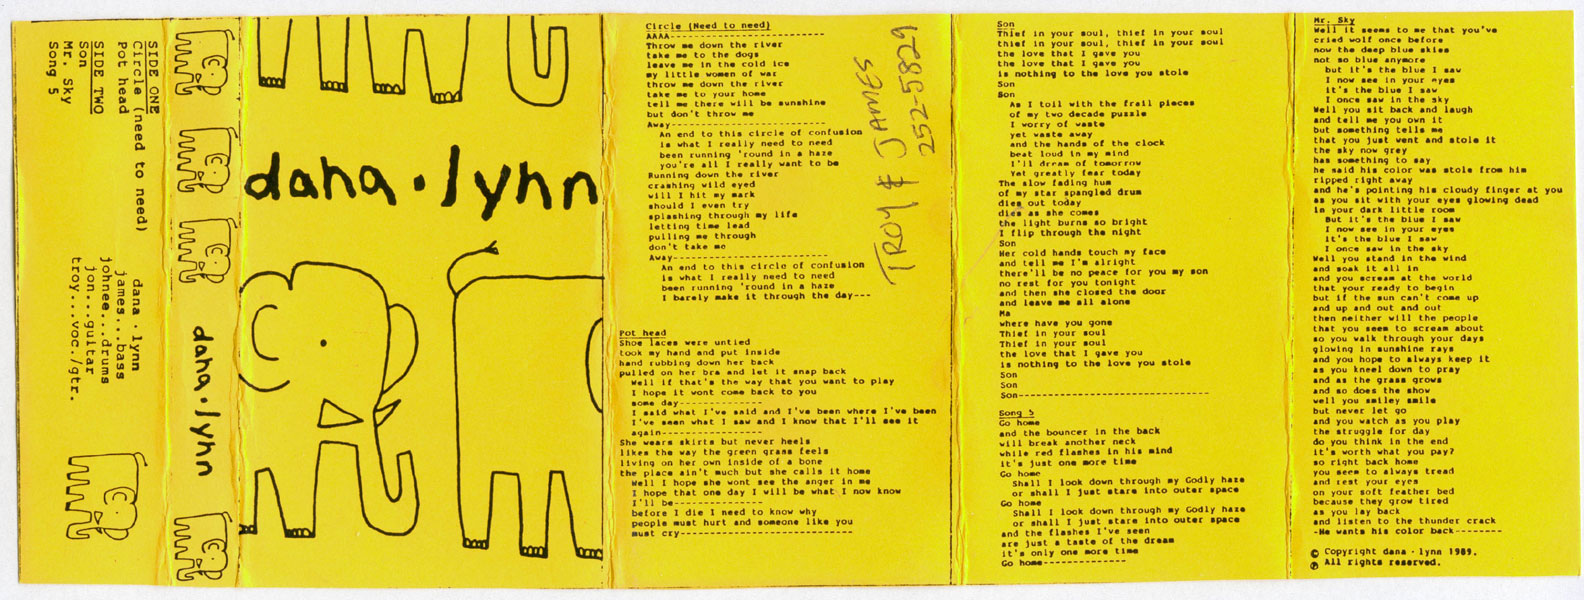 SIDE ONE
Circle (need to need)
Pot head
SIDE TWO
Son
Mr. Sky
Song 5
dana · lynn
james...bass
johnee...drums
jon...guitar
troy...voc./gtr.
dana·lynn
dana·lynn
Circle (Need to need)
AAAA--------------------------
Throw me down the river
take me to the dogs
leave me in the cold ice
my little women of war
throw me down the river
take me to your home
tell me there will be sunshine
but don't throw me
Away--------------------------
An end to this circle of confusion
is what I really need to need
been running 'round in a haze
you're all I really want to be
Running down the river
crashing wild eyed
will I hit my mark
should I even try
splashing through my life
letting time lead
pulling me through
don't take me
Away--------------------------
An end to this circle of confusion
is what I really need to need
been running 'round in a haze
I barely make it through the day---
TROY & JAMES
252-5829
Pot head
Shoe laces were untied
took my hand and put inside
hand rubbing down her back
pulled on her bra and let it snap back
Well if that's the way that you want to play
I hope it wont come back to you
some day----------------
I said what I've said and I've been where I've been
I've seen what I saw and I know that I'll see it
again----------------
She wears skirts but never heels
likes the way the green grass feels
living on her own inside of a bone
the place ain't much but she calls it home
Well I hope she wont see the anger in me
I hope that one day I will be what I now know
I'll be-------------
before I die I need to know why
people must hurt and someone like you
must cry-------------------------
Son
Thief in your soul, thief in your soul
thief in your soul, thief in your soul
the love that I gave you
the love that I gave you
is nothing to the love you stole
Son
Son
As I toil with the frail pieces
of my two decade puzzle
I worry of waste
yet waste away
and the hands of the clock
beat loud in my mind
I'll dream of tomorrow
Yet greatly fear today
The slow fading hum
of my star spangled drum
dies out today
dies as she comes
the light burns so bright
I flip through the night
Son
Her cold hands touch my face
and tell me I'm alright
there'll be no peace for you my son
no rest for you tonight
and then she closed the door
and leave me all alone
Ma
where have you gone
Thief in your soul
Thief in your soul
the love that I gave you
is nothing to the love you stole
Son
Son
Son---------------------------
Song 5
Go home
and the bouncer in the back
will break another neck
while red flashes in his mind
it's just one more time
Go home
Shall I look down through my Godly haze
or shall I just stare into outer space
Go home
Shall I look down through my Godly haze
or shall I just stare into outer space
and the flashes I've seen
are just a taste of the dream
it's only one more time
Go home-------------
Mr. Sky
Well it seems to me that you've
cried wolf once before
now the deep blue skies
not so blue anymore
but it's the blue I saw
I now see in your eyes
it's the blue I saw
I once saw in the sky
Well you sit back and laugh
and tell me you own it
but something tells me
that you just went and stole it
the sky now grey
has something to say
he said his color was stole from him
ripped right away
and he's pointing his cloudy finger at you
as you sit with your eyes glowing dead
in your dark little room
But it's the blue I saw
I now see in your eyes
it's the blue I saw
I once saw in the sky
Well you stand in the wind
and soak it all in
and you scream at the world
that your ready to begin
but if the sun can't come up
and up and out and out
then neither will the people
that you seem to scream about
so you walk through your days
glowing in sunshine rays
and you hope to always keep it
as you kneel down to pray
and as the grass grows
and so does the show
well you smiley smile
but never let go
and you watch as you play
the struggle for day
do you think in the end
it's worth what you pay?
so right back home
you seem to always tread
and rest your eyes
on your soft feather bed
because they grow tired
as you lay back
and listen to the thunder crack
-He wants his color back----------
© Copyright dana · lynn 1989.
℗ All rights reserved.